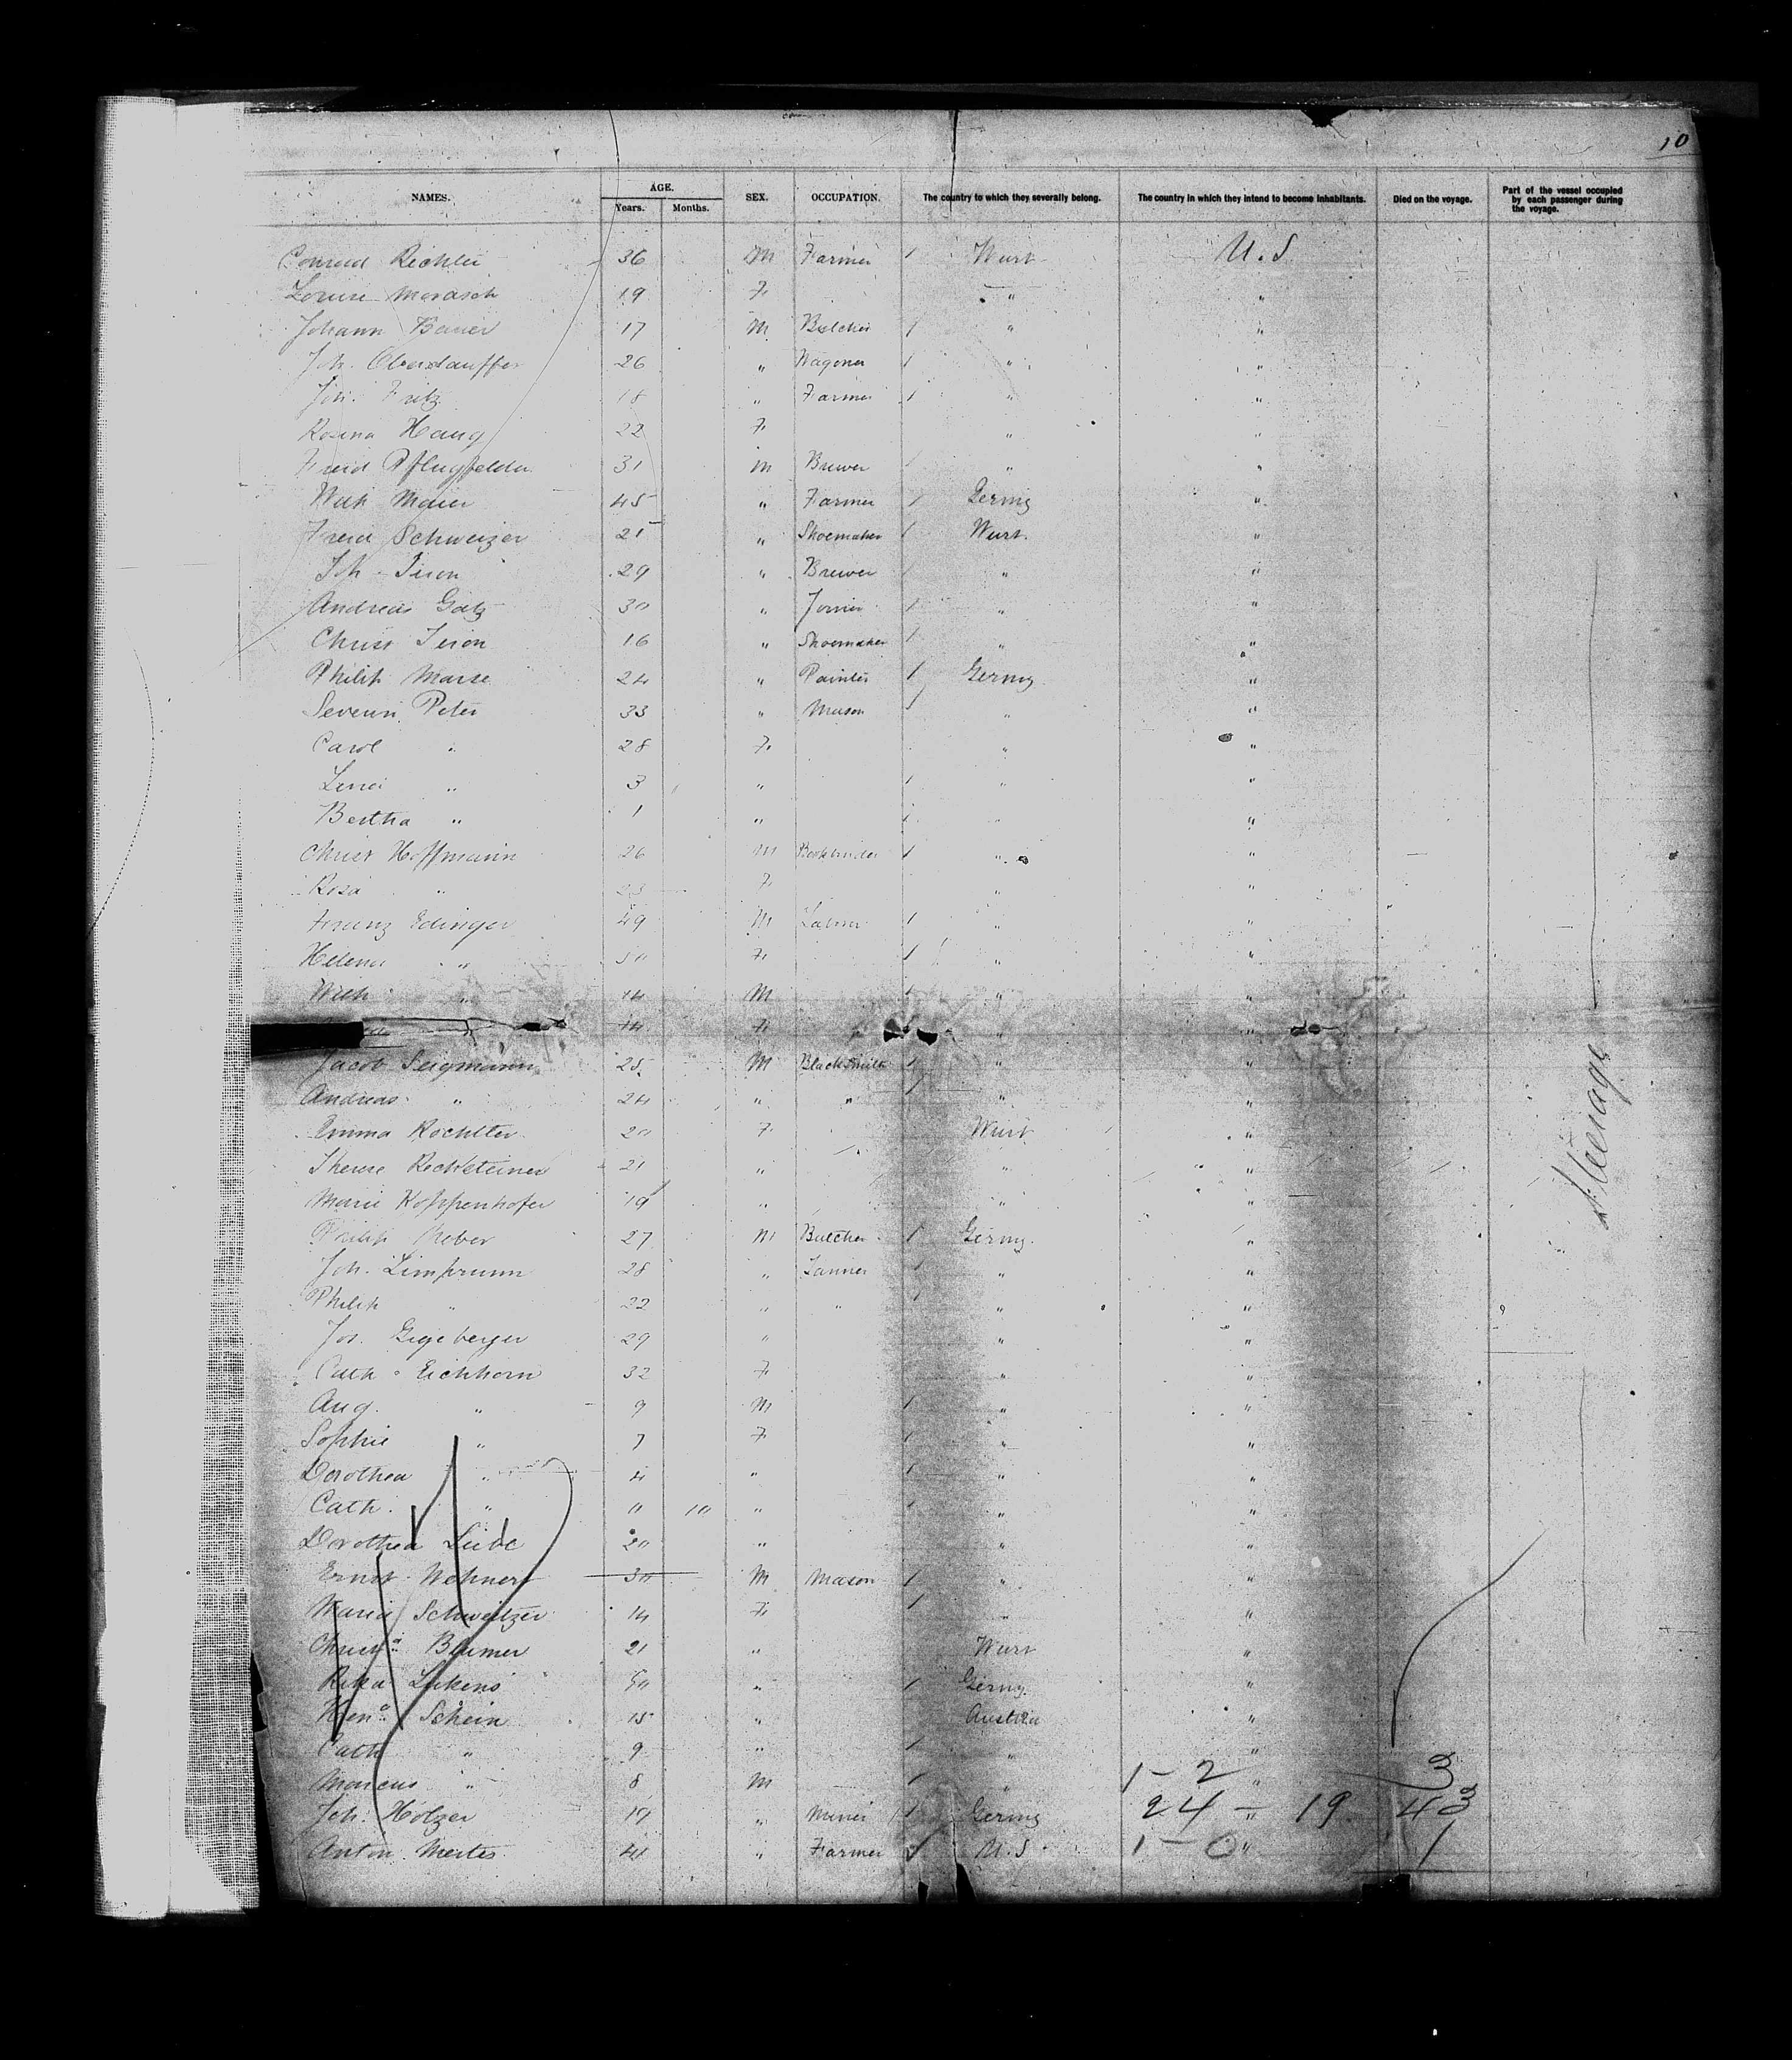 10
NAMES. AGE. SEX. OCCUPATION. The country to which they severally belong. The country in which they intend to become inhabitants. Died on the voyage. Part of the vessel occupied by each passenger during the voyage.
Years. Months.
Conrad Richter 36 M Farmer 1 Wurt U.S
Louise Morasch 19 F. " "
Johann Bauer 17 M Butcher 1 " "
Joh. 26 " Wagoner 1 " "
Joh. Fritz 18 " Farmer 1 " "
Rosina Haug 22 F. " "
Fried Pflugfelder 31 M Brewer 1 " "
Maier 45 " Farmer 1 Germy "
Fried Schweizer 25 " Shoemaker 1 Wurt. "
Joh 29 " Brewer 1 " "
Andreas Gatz 30 " Joiner 1 " "
Christ 16 " Shoemaker 1 " "
Philip Marse 24 " Painter 1 Germy "
Severin Peter 33 " Mason 1 " "
Carol " 28 F. " "
" 3 " 1 " "
Bertha " 1 " 1 " "
Christ Hoffmann 26 M Bookbinder 1 " "
Rosa " F. " "
Franz Edinger 49 M Labour 1 " "
Helena " 50 F. 1 " "
Wilh " 14 M 1 " "
" F. " "
Jacob Seigmann 25 M Blacksmith 1 " "
Andreas " 24 " " 1 " "
Emma Rochlter 20 F. Wurt "
Therese Rechsteiner 21 " " "
Marie Koppenhofer 19 " " "
Philip Weber 27 M Butcher 1 Germy. "
Joh. Limprunn 28 " Tanner 1 " "
Philip " 22 " " 1 " "
Jos. 29 " " "
Cath Eichhorn 32 F. " "
Aug. " 9 M 1 " "
Sophie " 7 F. 1 " "
Dorothea " 4 " 1 " "
Cath. " " 10 " 1 " "
Dorothea 20 " " "
Ernst Wehner 30 M Mason 1 " "
Maria Schweitzer 14 F. 1 " "
21 " Wurt "
Rika Lukens 50 " 1 Germy. "
Schein 15 " Austria "
Cath " 9 " 1 " "
Marcus " 8 M 1 " "
Joh. Holzer 19 " Miner 1 Germy "
Anton Mertes 41 " Farmer U.S "
Steerage
1 - 2 3
24 - 19 43
1 - 0 1